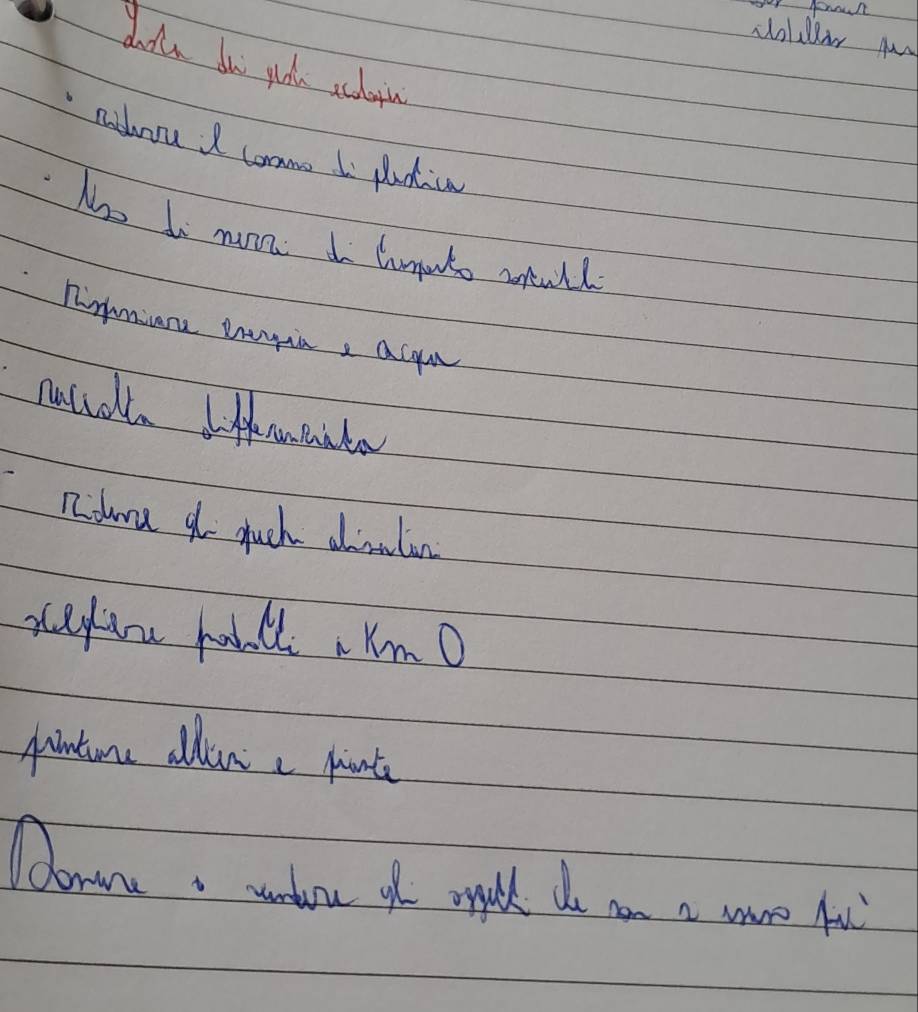 Lista dei gesti ecologici
• ridurre il consumo di plastica
• Uso di mezzi di trasporto sostenibili
• Risparmiare energia e acqua
• raccolta differenziata
- Ridurre gli sprechi alimentari
scegliere prodotti a Km 0
piantare alberi e piante
Donare o vendere gli oggetti che non si usano più